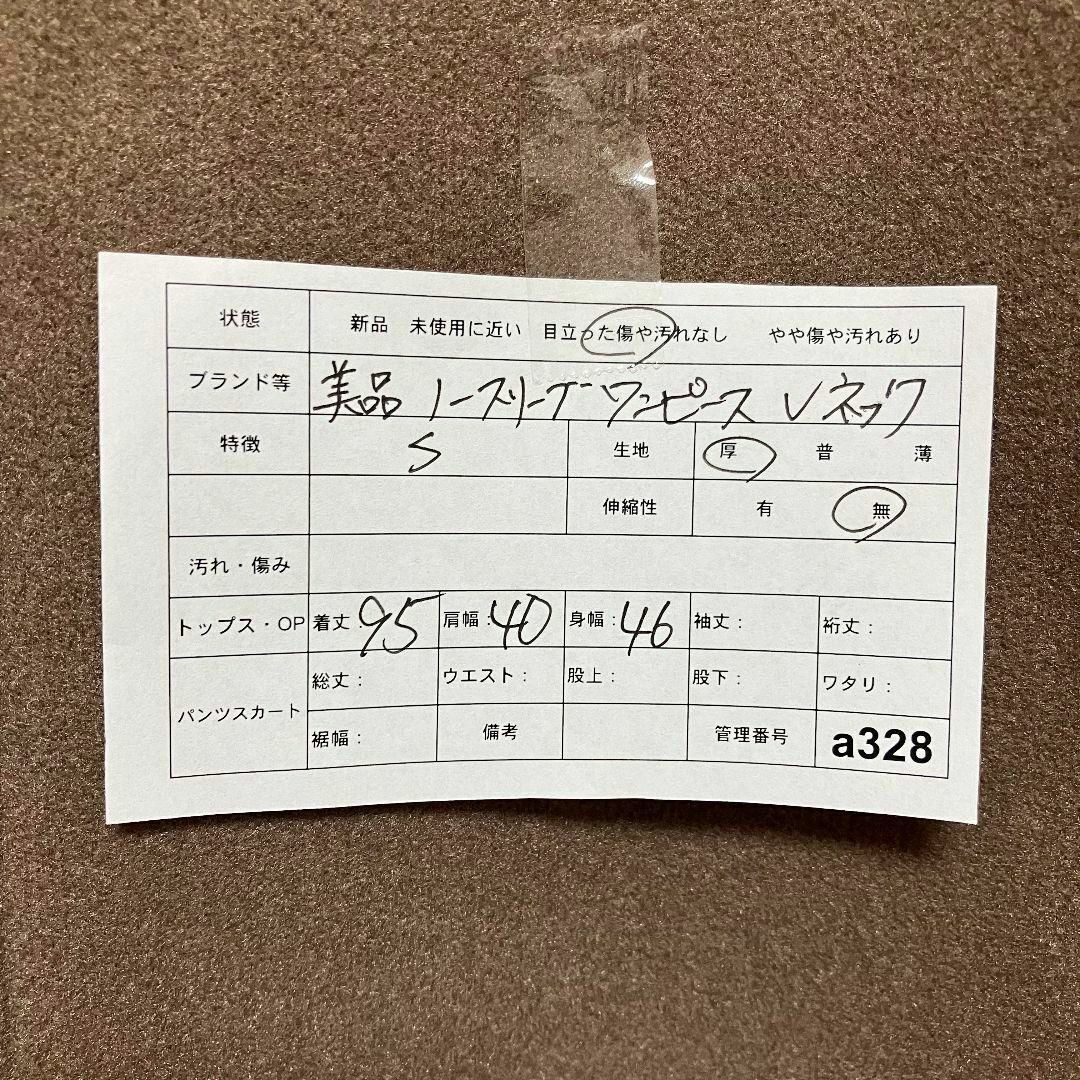 状態 新品 未使用に近い 目立った傷や汚れなし やや傷や汚れあり
ブランド等 美品 ノースリーブワンピース Vネック
特徴 S 生地 厚 普 薄
伸縮性 有 無
汚れ・傷み
トップス・OP 着丈:95 肩幅:40 身幅:46 袖丈: 裄丈:
パンツスカート 総丈: ウエスト: 股上: 股下: ワタリ:
裾幅: 備考 管理番号 a328